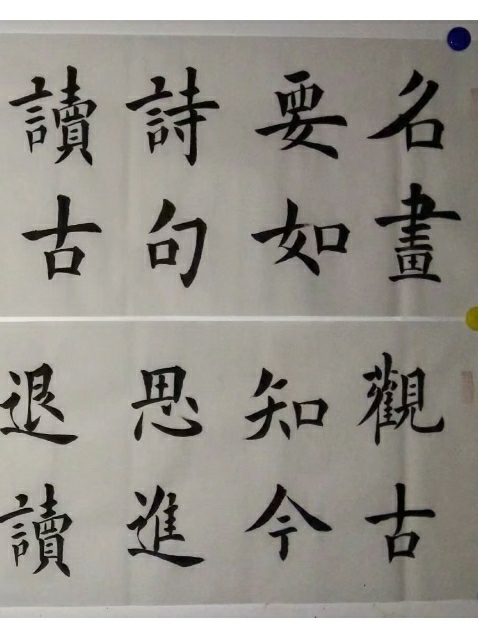 名畫
要如
詩句
讀古
觀古
知今
思進
退讀